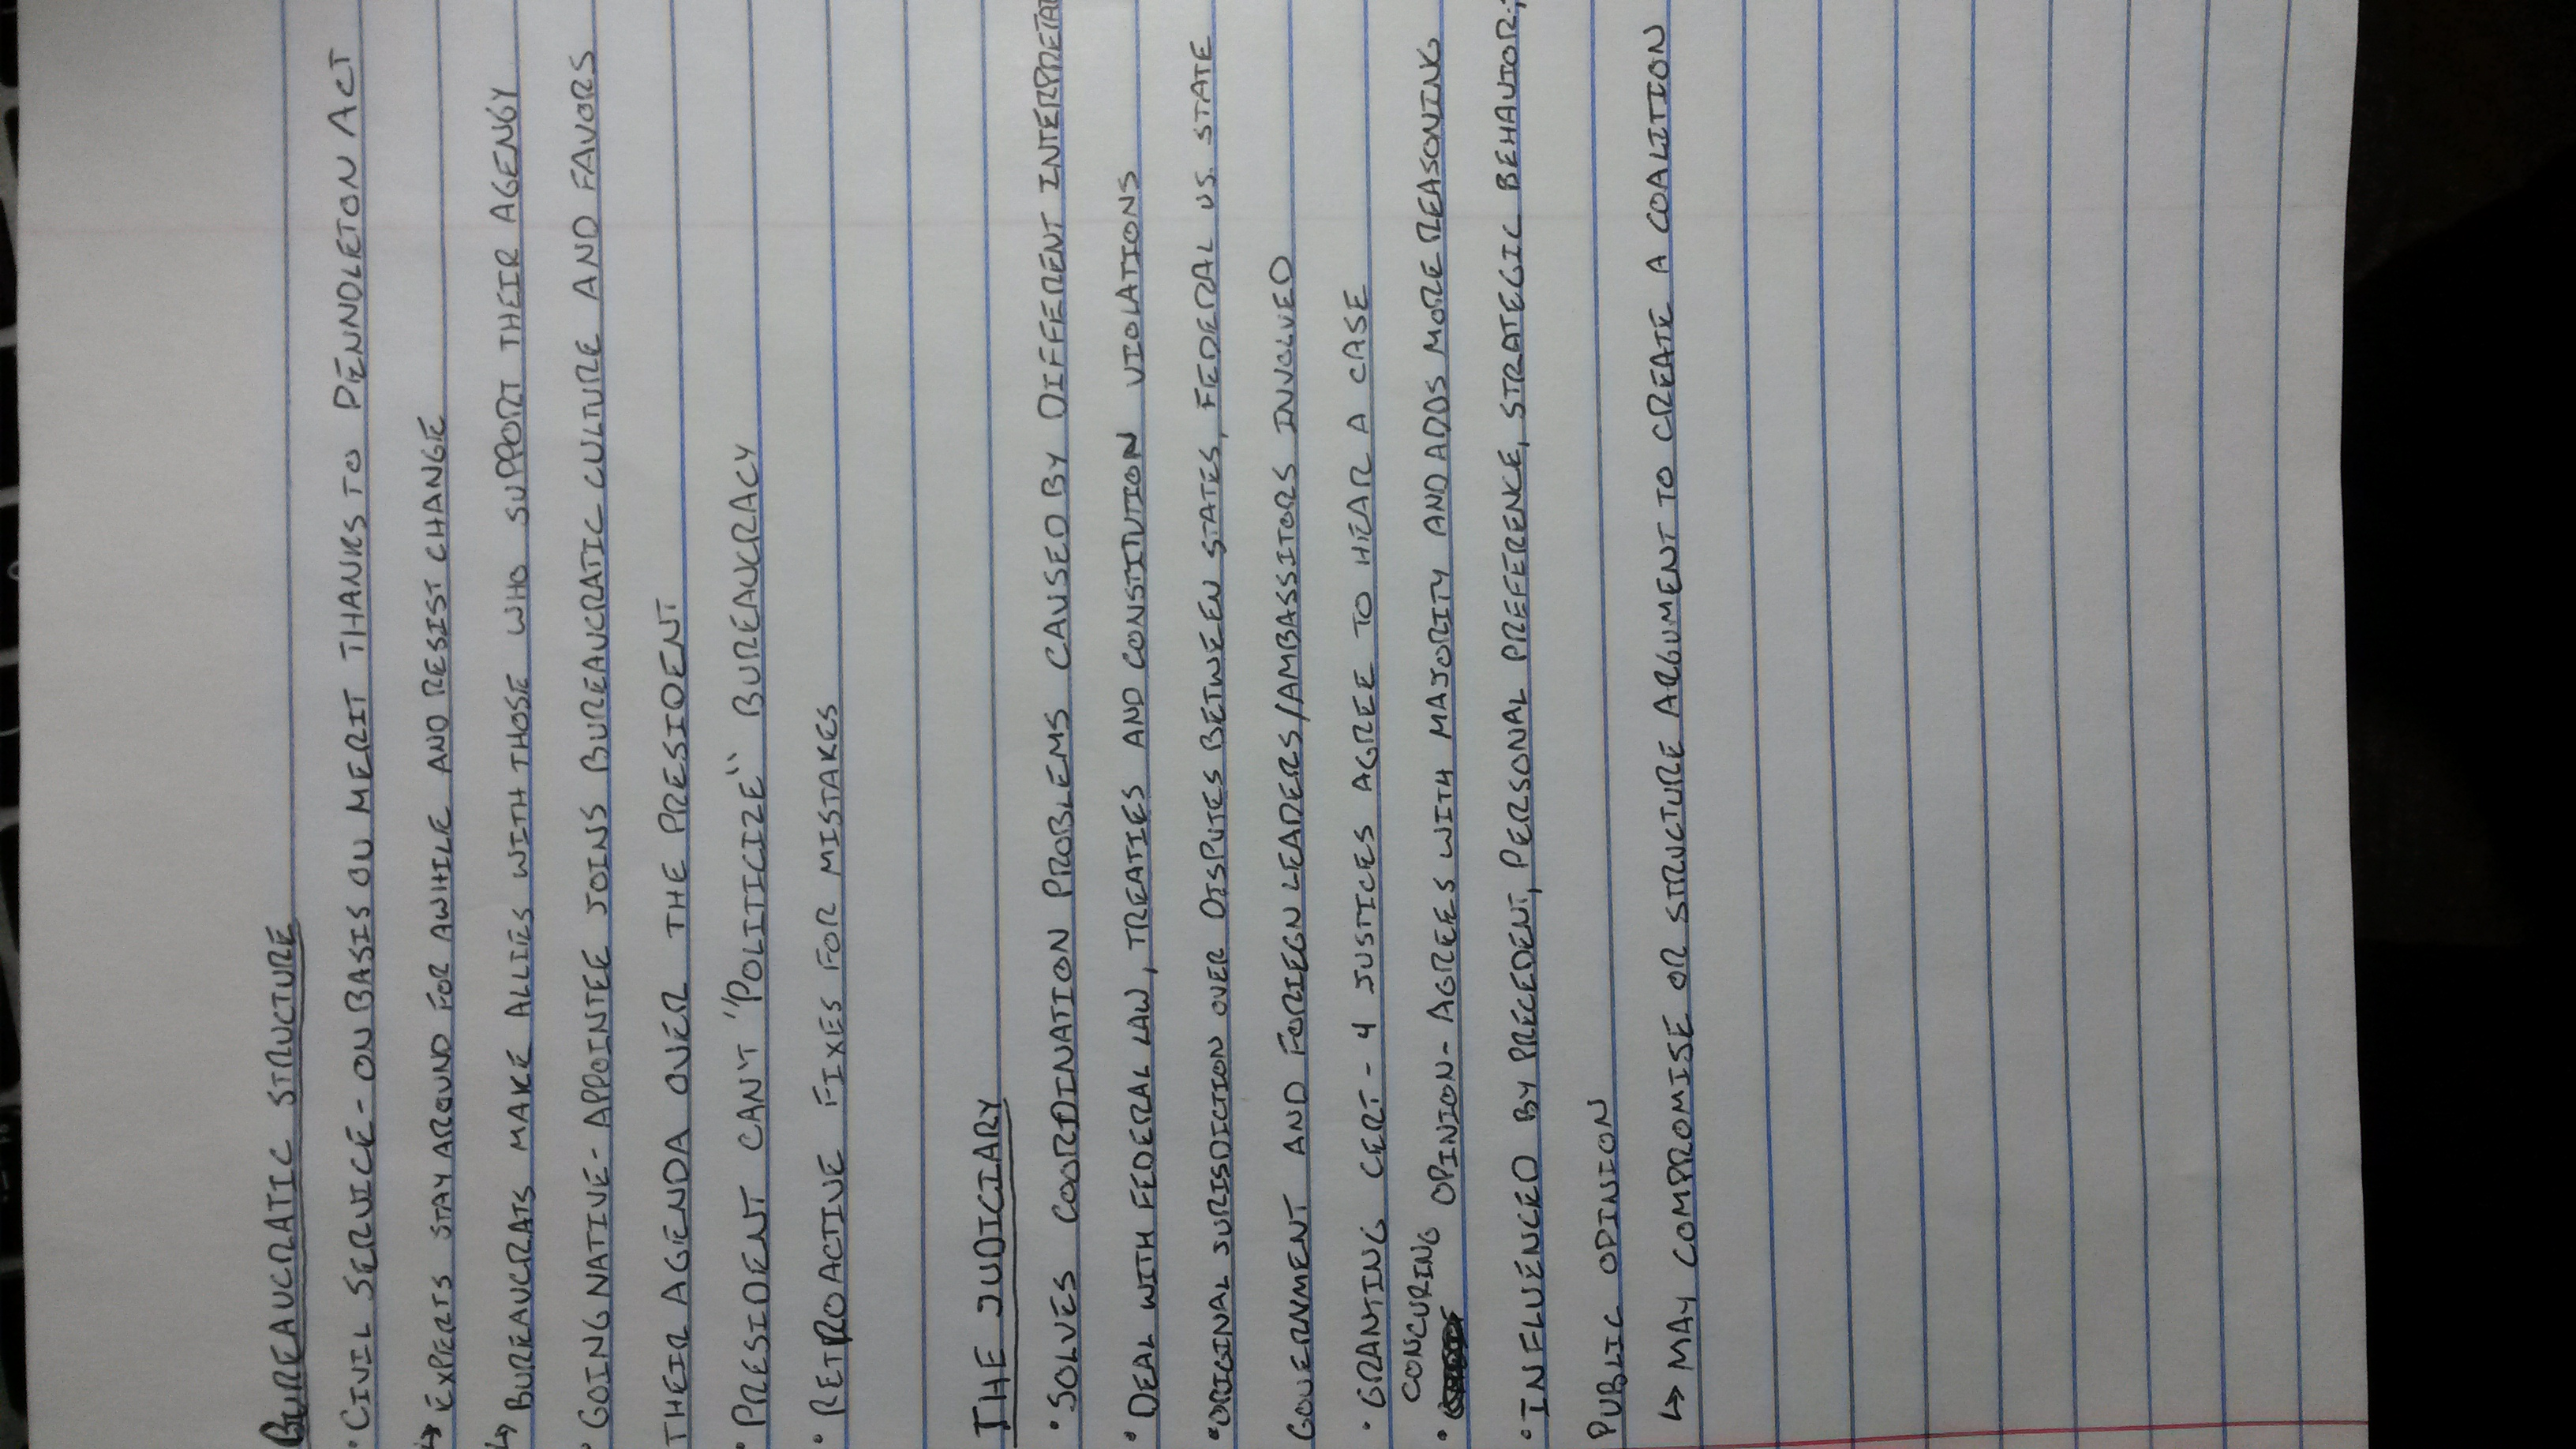 BUREAUCRATIC STRUCTURE
• CIVIL SERVICE - ON BASIS OU MERIT THANKS TO PENNDLETON ACT
↳ EXPERTS STAY AROUND FOR AWHILE AND RESIST CHANGE
↳ BUREAUCRATS MAKE ALLIES WITH THOSE WHO SUPPORT THEIR AGENGY
• GOING NATIVE - APPOINTEE JOINS BUREAUCRATIC CULTURE AND FAVORS
THEIR AGENDA OVER THE PRESIDENT
• PRESIDENT CAN'T "POLITICIZE" BUREAUCRACY
• RETROACTIVE FIXES FOR MISTAKES
THE JUDICIARY
• SOLVES COORDINATION PROBLEMS CAUSED BY DIFFERENT
• DEAL WITH FEDERAL LAW, TREATIES AND CONSTITUTION VIOLATIONS
• ORIGINAL JURISDICTION OVER DISPUTES BETWEEN STATES, FEDERAL VS. STATE
GOVERNMENT AND FORIEGN LEADERS/AMBASSITORS INVOLVED
• GRANTING CERT - 4 JUSTICES AGREE TO HEAR A CASE
• CONCURING OPINION - AGREES WITH MAJORITY AND ADDS MORE REASONING
• INFLUENCED BY PRECEDENT, PERSONAL PREFERENCE, STRATEGIC BEHAVIOR,
PUBLIC OPINION
↳ MAY COMPROMISE OR STRUCTURE ARGUMENT TO CREATE A COALITION